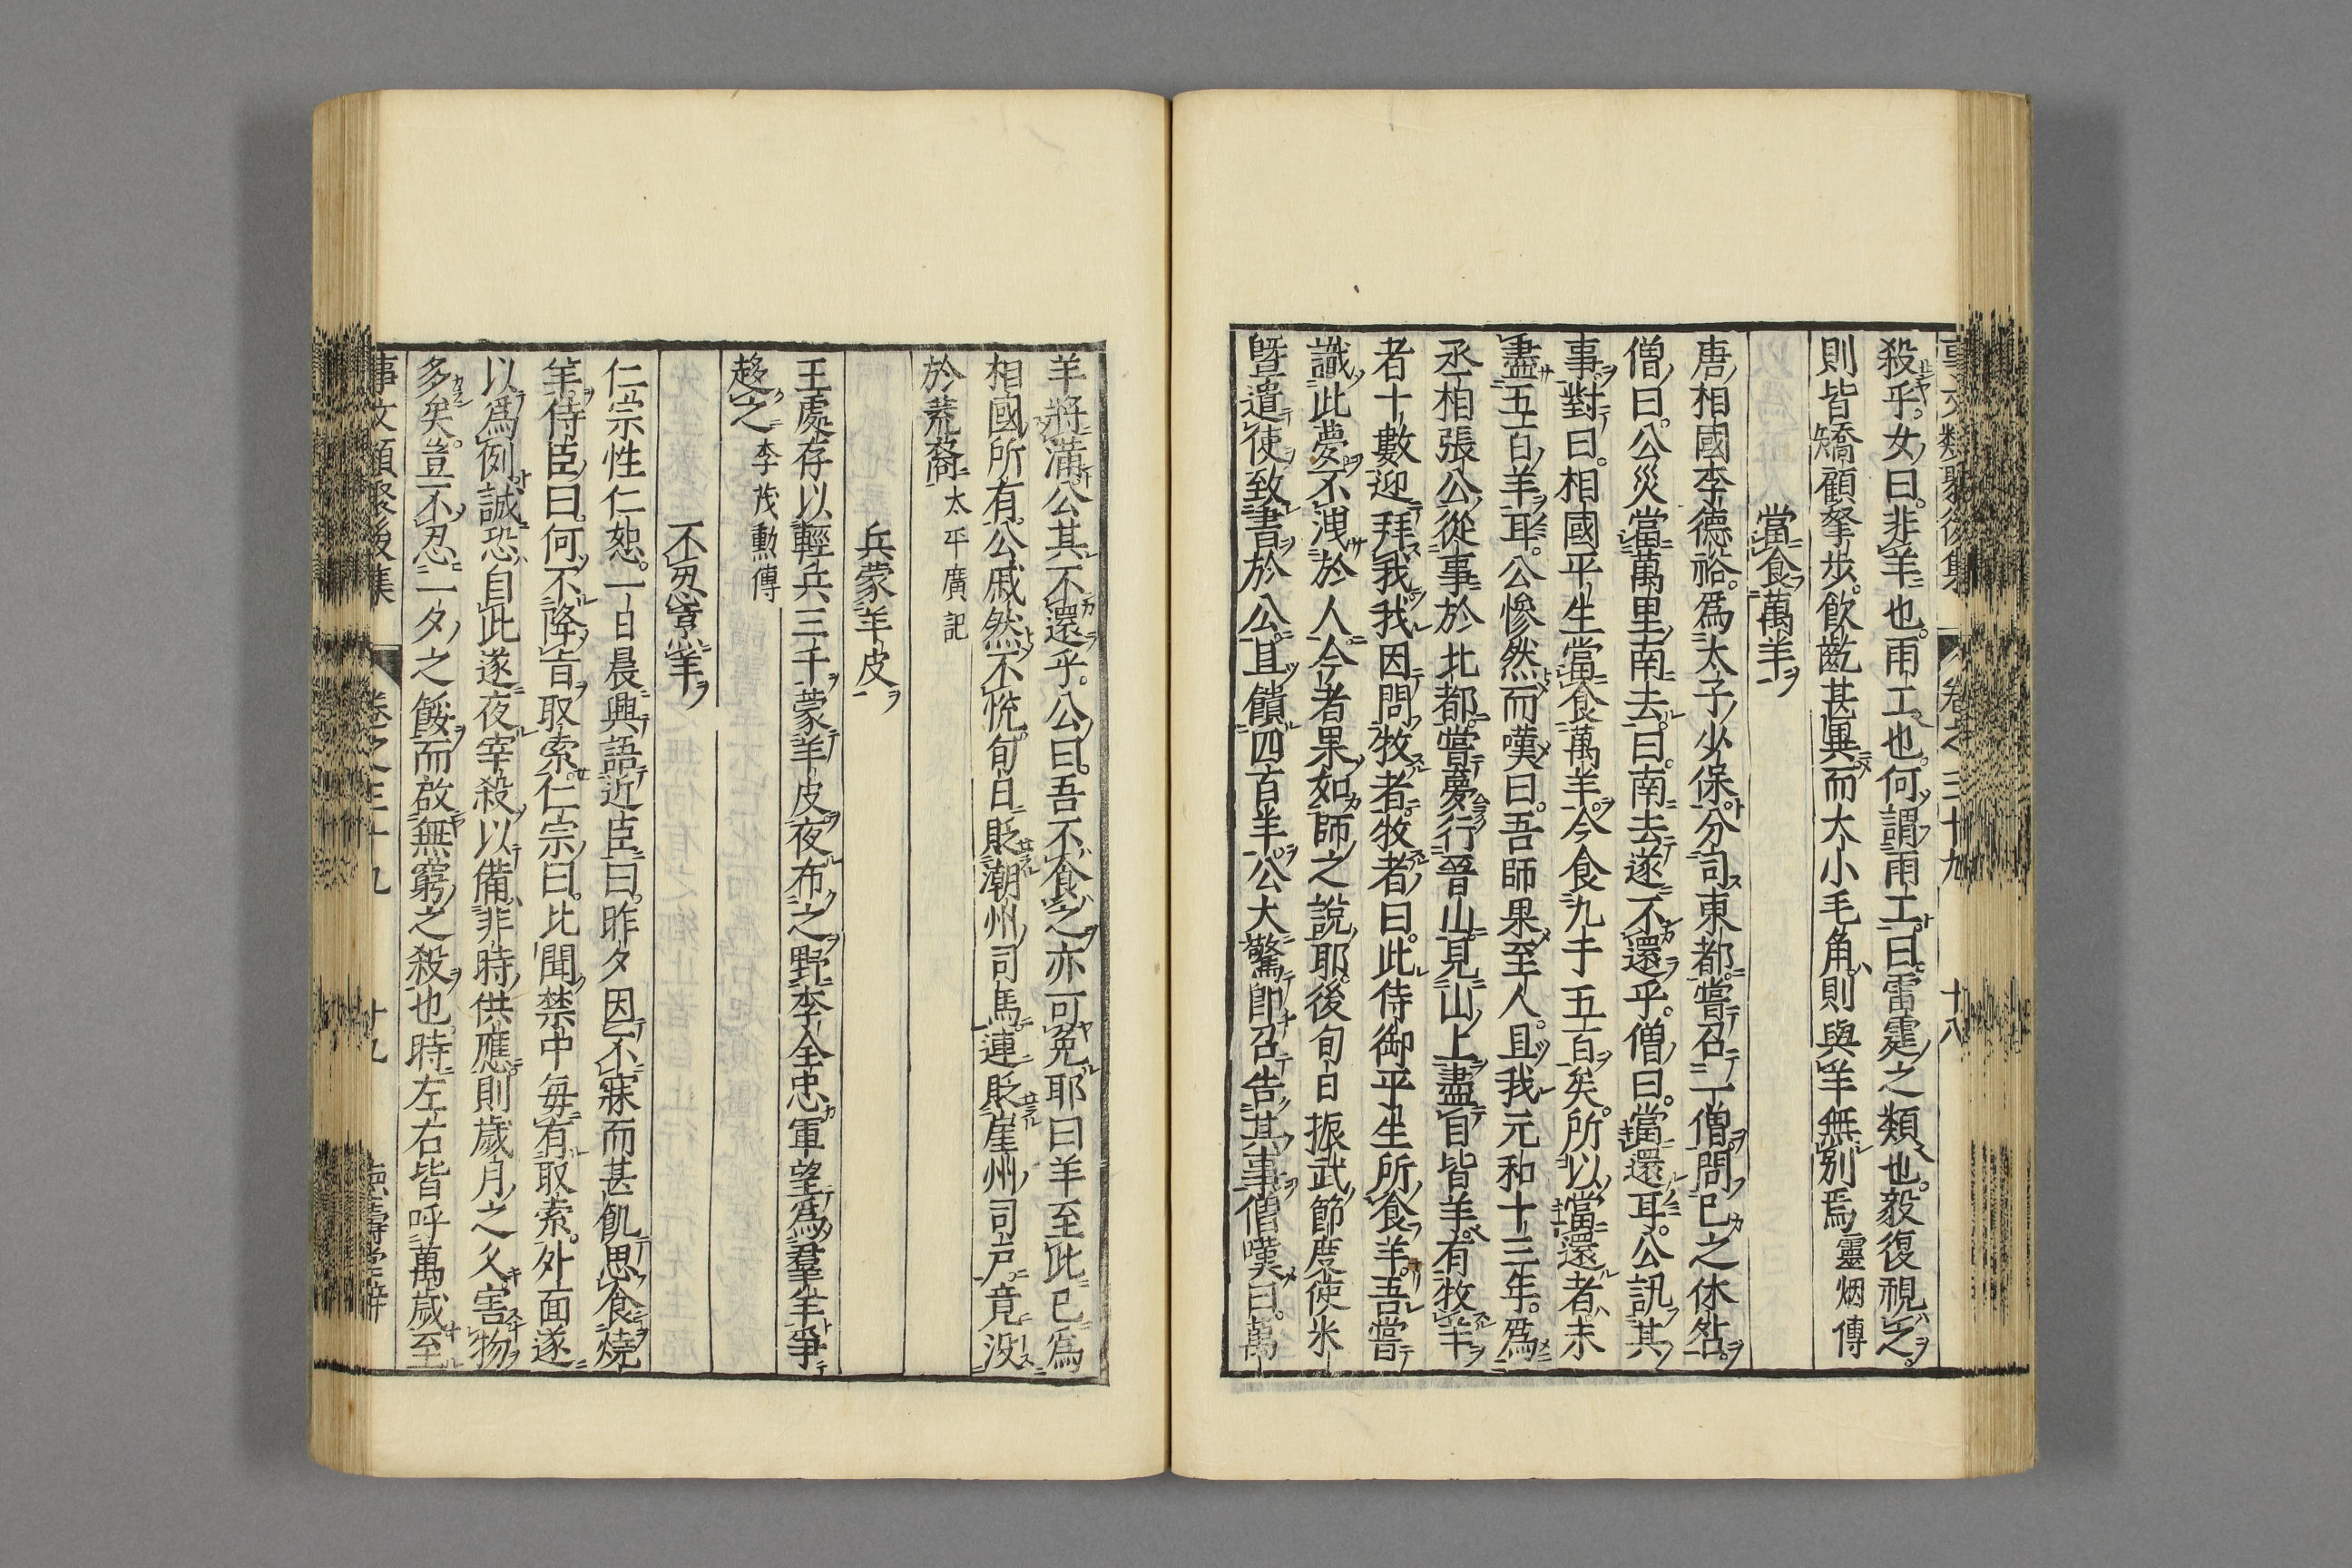 事文類聚後集 卷之三十九 十八
殺乎。女曰。非羊也。雨工也。何謂雨工。曰雷霆之類也。毅復視之。
則皆矯顧拏步。飲齕甚異。而大小毛角。則與羊無別焉 靈烟傳
當食萬羊
唐相國李德裕。爲太子少保。分司東都。嘗召一僧。問已之休咎。
僧曰。公災當萬里南去。曰南去遂不還乎。僧曰。當還耳。公訊其
事。對曰。相國平生當食萬羊。今食九千五百矣。所以當還者。未
盡五百羊耳。公慘然而嘆曰。吾師果至人。且我元和十三年。爲
丞相張公從事於北都。嘗夢行晉山。見山上盡目皆羊。有牧羊
者十數迎拜我。我因問牧者。牧者曰。此侍御平生所食羊。吾嘗
識此夢。不洩於人。今者果如師之說耶。後旬日振武節度使米
曁遣使致書於公。且饋四百羊。公大驚。卽召告其事。僧嘆曰。萬
羊將滿。公其不還乎。公曰。吾不食之。亦可免耶。曰羊至此已爲
相國所有。公戚然不悅。旬日貶潮州司馬。連貶崖州司戸。竟没
於荒裔 太平廣記
兵蒙羊皮
王處存以輕兵三千蒙羊皮夜布之野。李全忠軍望爲羣羊爭
趍之 李茂勲傳
不忍烹羊
仁宗性仁恕。一日晨興語近臣曰。昨夕因不寐而甚飢。思食燒
羊。侍臣曰。何不降旨取索。仁宗曰。比聞禁中每有取索。外面遂
以爲例。誠恐自此遂夜宰殺。以備非時供應。則歲月之久。害物
多矣。豈不忍一夕之餒。而啟無窮之殺也。時左右皆呼萬歲。至
事文類聚後集 卷之三十九 十九